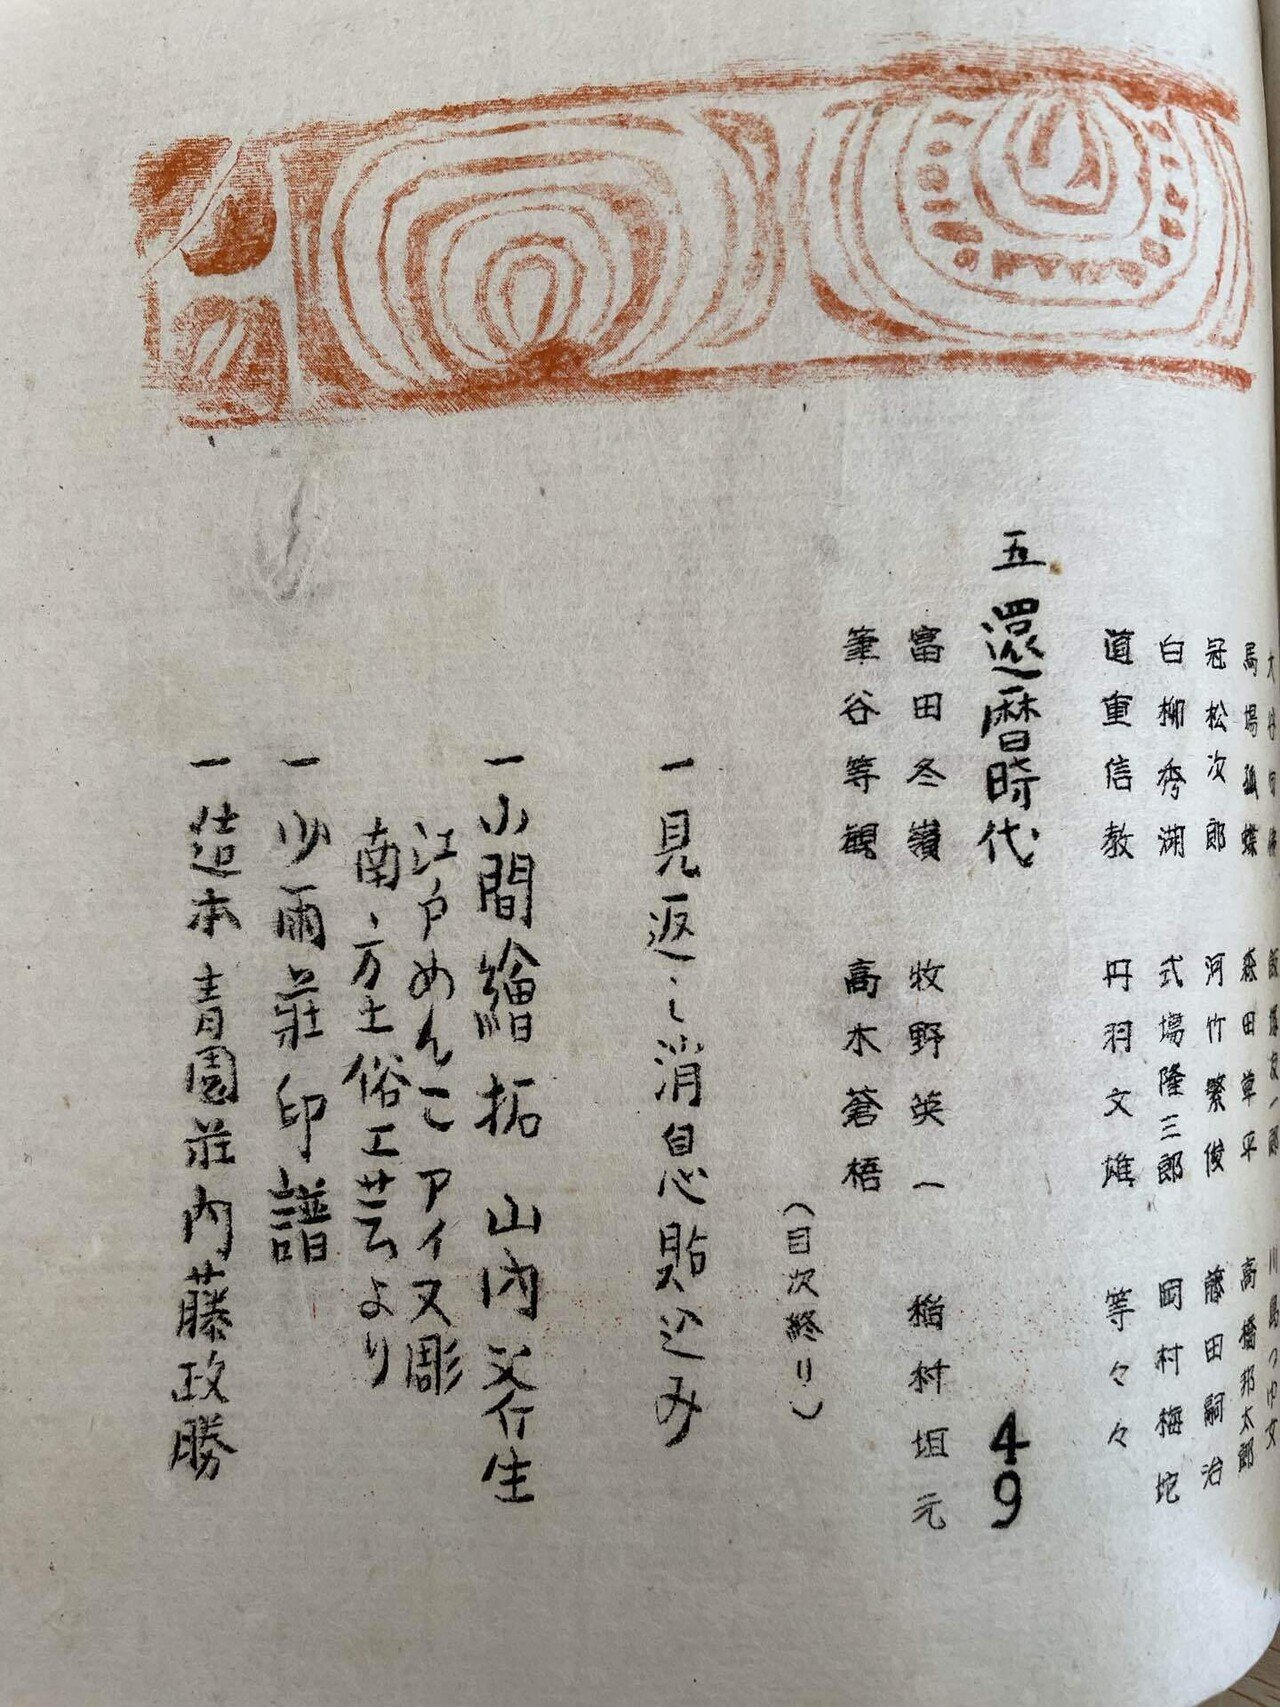 馬場孤蝶 森田草平 高橋邦太郎
冠松次郎 河竹繁俊 藤田嗣治
白柳秀湖 式場隆三郎 岡村梅
道重信教 丹羽文雄 等々々
五 還暦時代 49
富田冬嶺 牧野英一 稲村坦元
筆谷等観 高木蒼梧
(目次終り)
一見返し消息貼込み
一小間繪拓 山内 生
江戸めんこ アイヌ彫
南方土俗工芸より
一少雨荘印譜
一造本青園荘内藤政勝